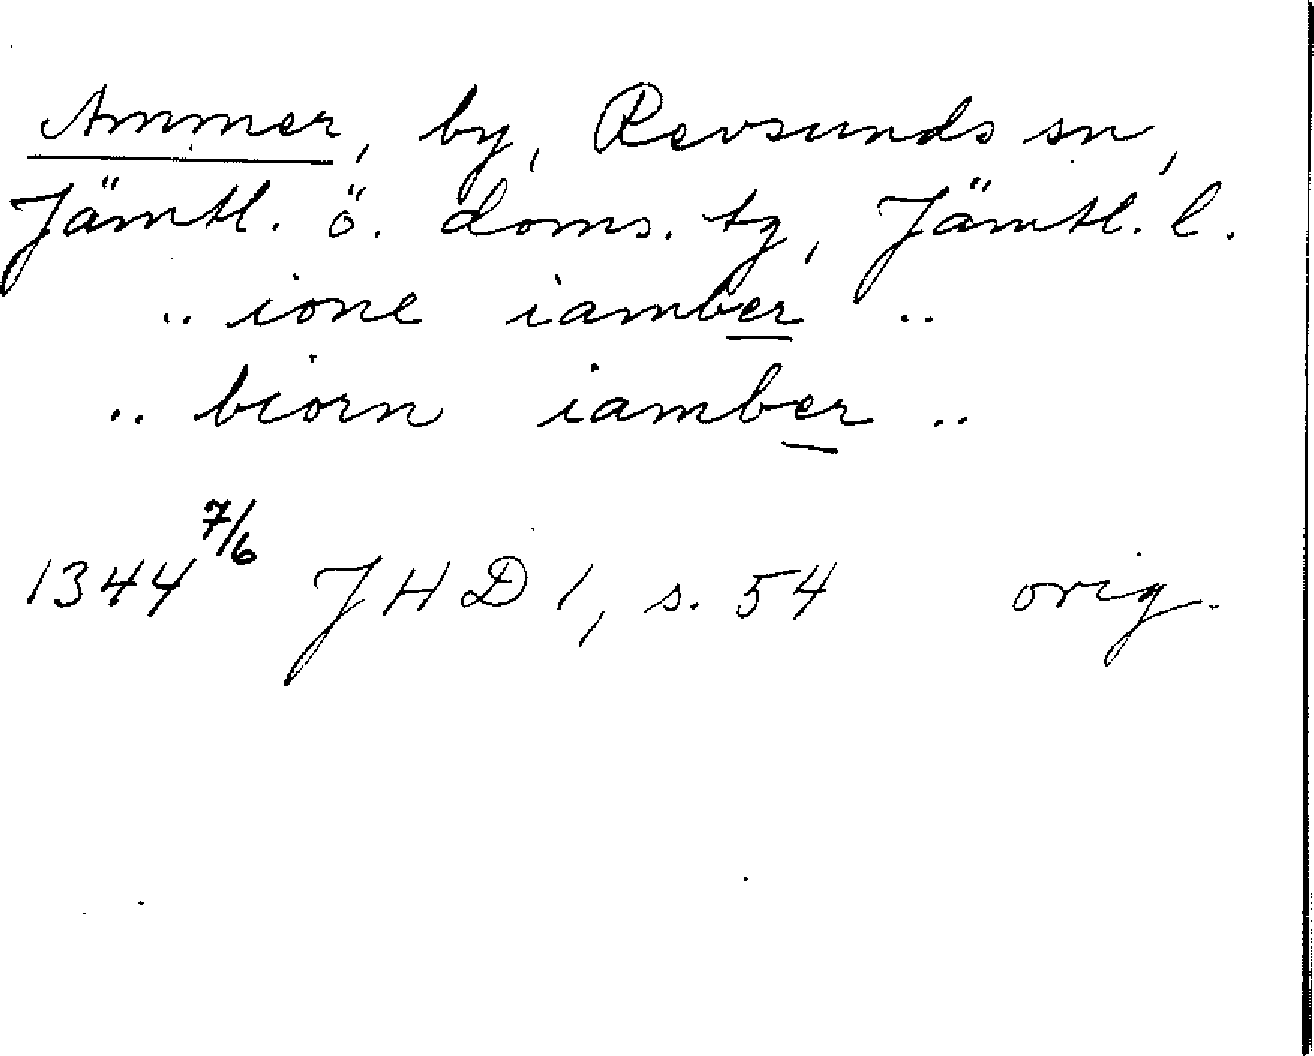 Ammer, by, Revsunds sn,
Jämtl. ö. doms. tg, Jämtl. l.
.. ione iamber ..
.. biorn iamber ..
1344 7/6 JHD 1, s. 54 orig.